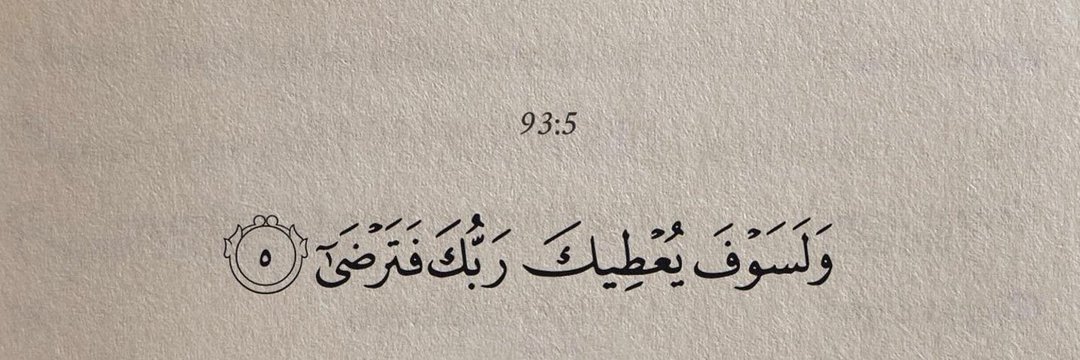 93:5
وَلَسَوْفَ يُعْطِيكَ رَبُّكَ فَتَرْضَىٰٓ ٥